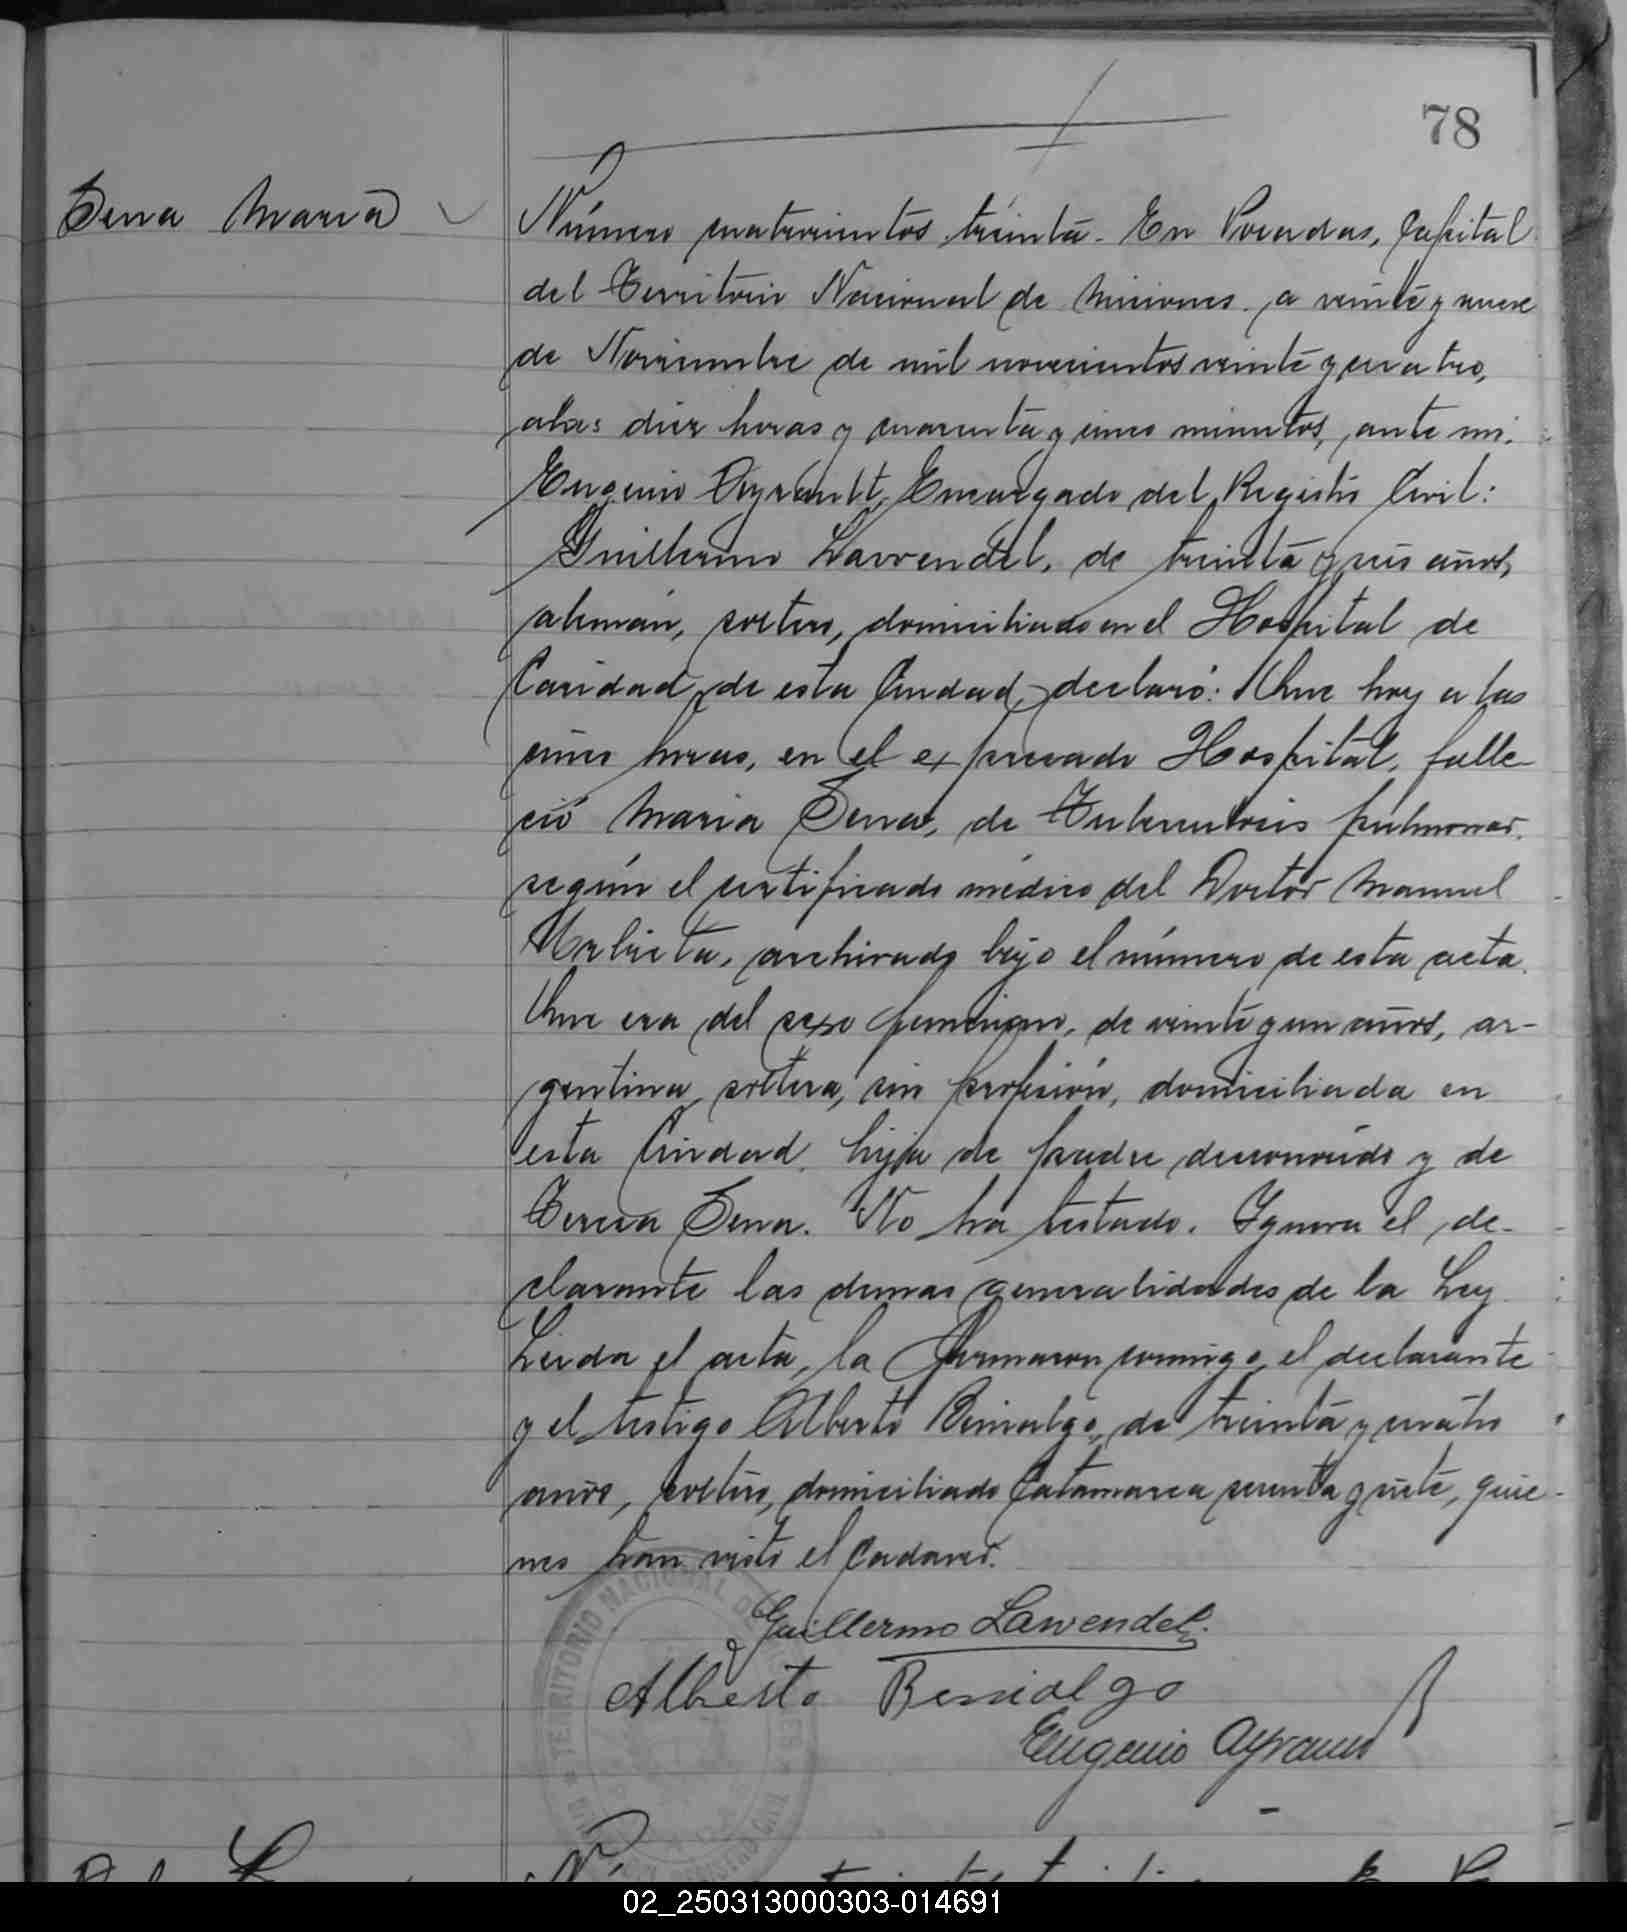 78
Sena Maria
Número cuatrocientos treinta. En Posadas, Capital
del Territorio Nacional de Misiones, a veinte y nueve
de Noviembre de mil novecientos veinte y cuatro,
a las diez horas y cuarenta y cinco minutos, ante mi,
Eugenio Ayrault, Encargado del Registro Civil:
Guillermo Lawendel, de treinta y seis años,
alemán, soltero, domiciliado en el Hospital de
Caridad, de esta Ciudad, declaró: Que hoy a las
cinco horas, en el expresado Hospital, falle-
ció Maria Sena, de Tuberculosis pulmonar,
según el certificado médico del Doctor Manuel
Urbieta, archivado bajo el número de esta acta.
Que era del sexo femenino, de veinte y un años, ar-
gentina, soltera, sin profesión, domiciliada en
esta Ciudad, hija de padre desconocido y de
Teresa Sena. No ha testado. Ignora el de-
clarante las demas generalidades de la Ley.
Leida el acta, la firmaron conmigo, el declarante
y el testigo Alberto, de treinta y cuatro
años, soltero, domiciliado Catamarca y siete, quie-
nes han visto el cadaver.
Guillermo Lawendel
Alberto
Eugenio Ayrault
TERRITORIO NACIONAL DE MISIONES
02_250313000303-014691